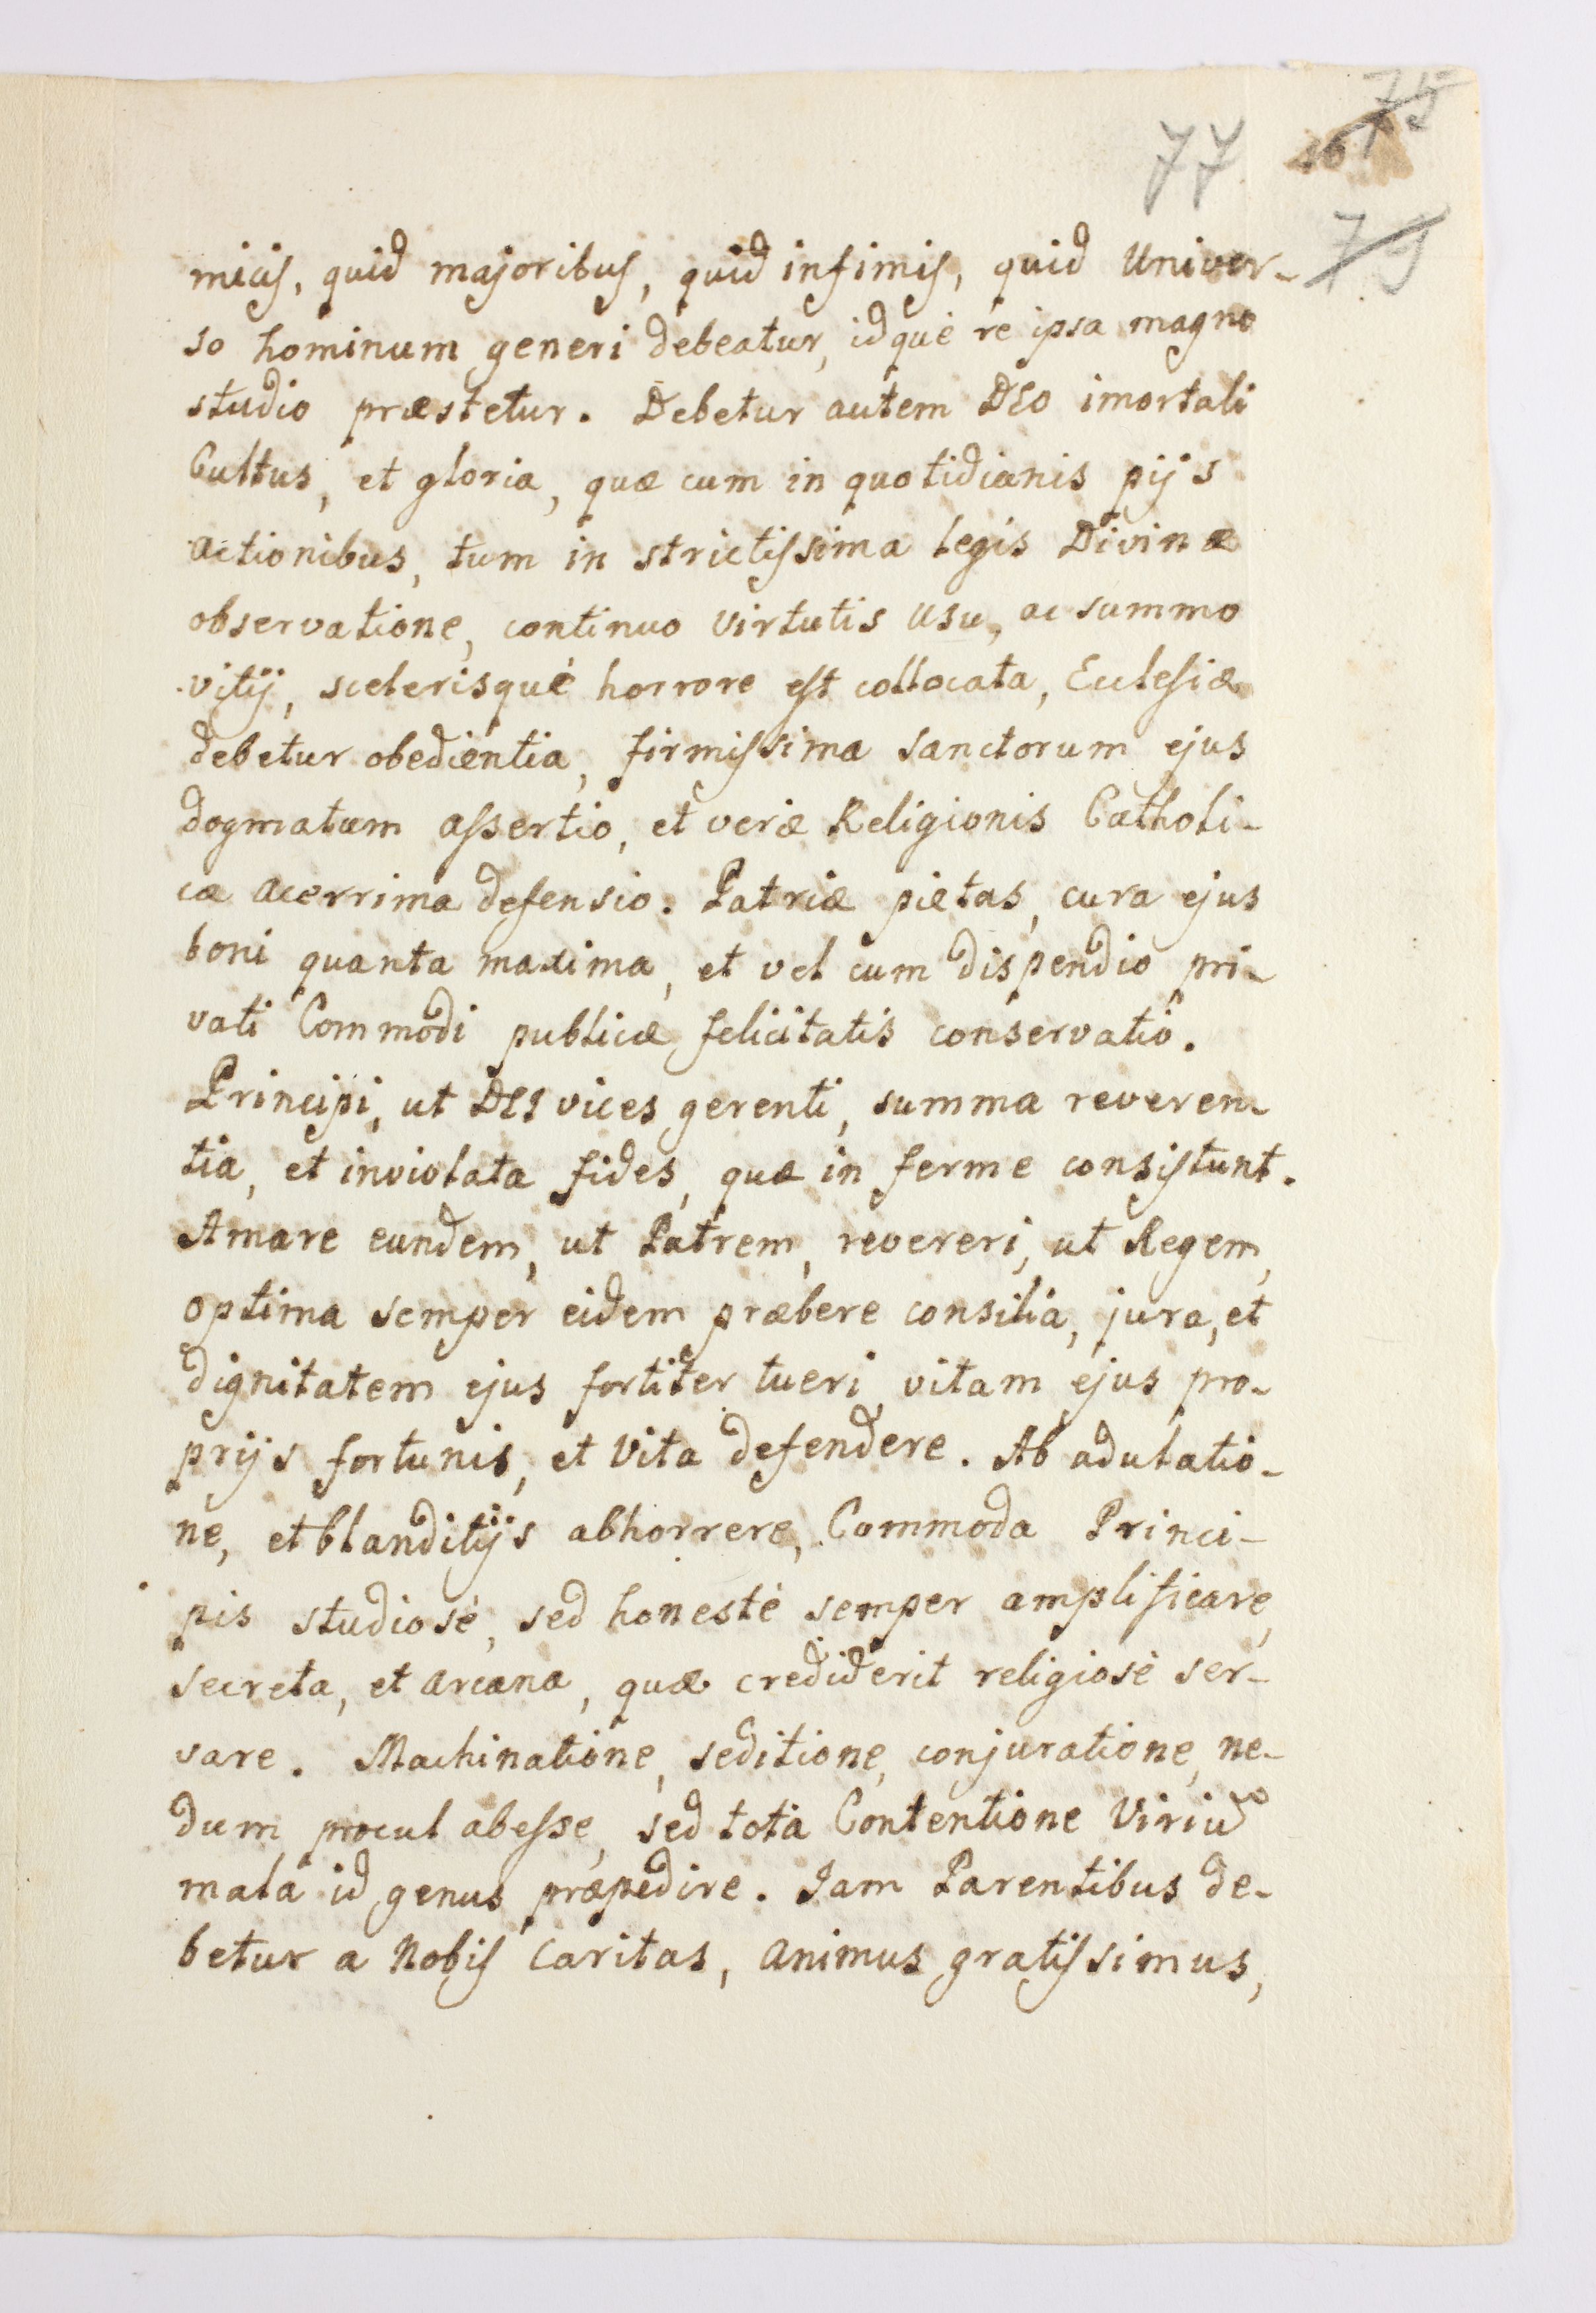 77
75
79
micis, quid majoribus, quid infimis, quid Univer-
so hominum generi debeatur, idquè re ipsa magno
studio præstetur. Debetur autem DEO imortali
Cultus, et gloria, quæ cum in quotidianis pijs
actionibus, tum in strictissima legis Divinæ
observatione, continuo virtutis usu, ac summo
vitij, scelerisquè horrore est collocata, Ecclesiæ
debetur obedientia, firmissima sanctorum ejus
dogmatum assertio, et veræ Religionis Catholi-
cæ acerrima defensio. Patriæ pietas, cura ejus
boni quanta maxima, et vel cum dispendio pri-
vati Commodi publicæ felicitatis conservatio.
Principi, ut DEI vices gerenti, summa reveren-
tia, et inviolata fides, quæ in ferme consistunt.
Amare eundem, ut Patrem, revereri, ut Regem,
optima semper eidem præbere consilia, jura, et
dignitatem ejus fortiter tueri, vitam ejus pro-
prijs fortunis, et vita defendere. Ab adulatio-
ne, et blanditijs abhorrere, Commoda Princi-
pis studiosè, sed honestè semper amplificare,
secreta, et arcana, quæ crediderit religiosè ser-
vare. Machinatione, seditione, conjuratione, ne-
dum procul abesse, sed tota Contentione Viriū
mala id genus præpedire. Jam Parentibus de-
betur a Nobis caritas, animus gratissimus,